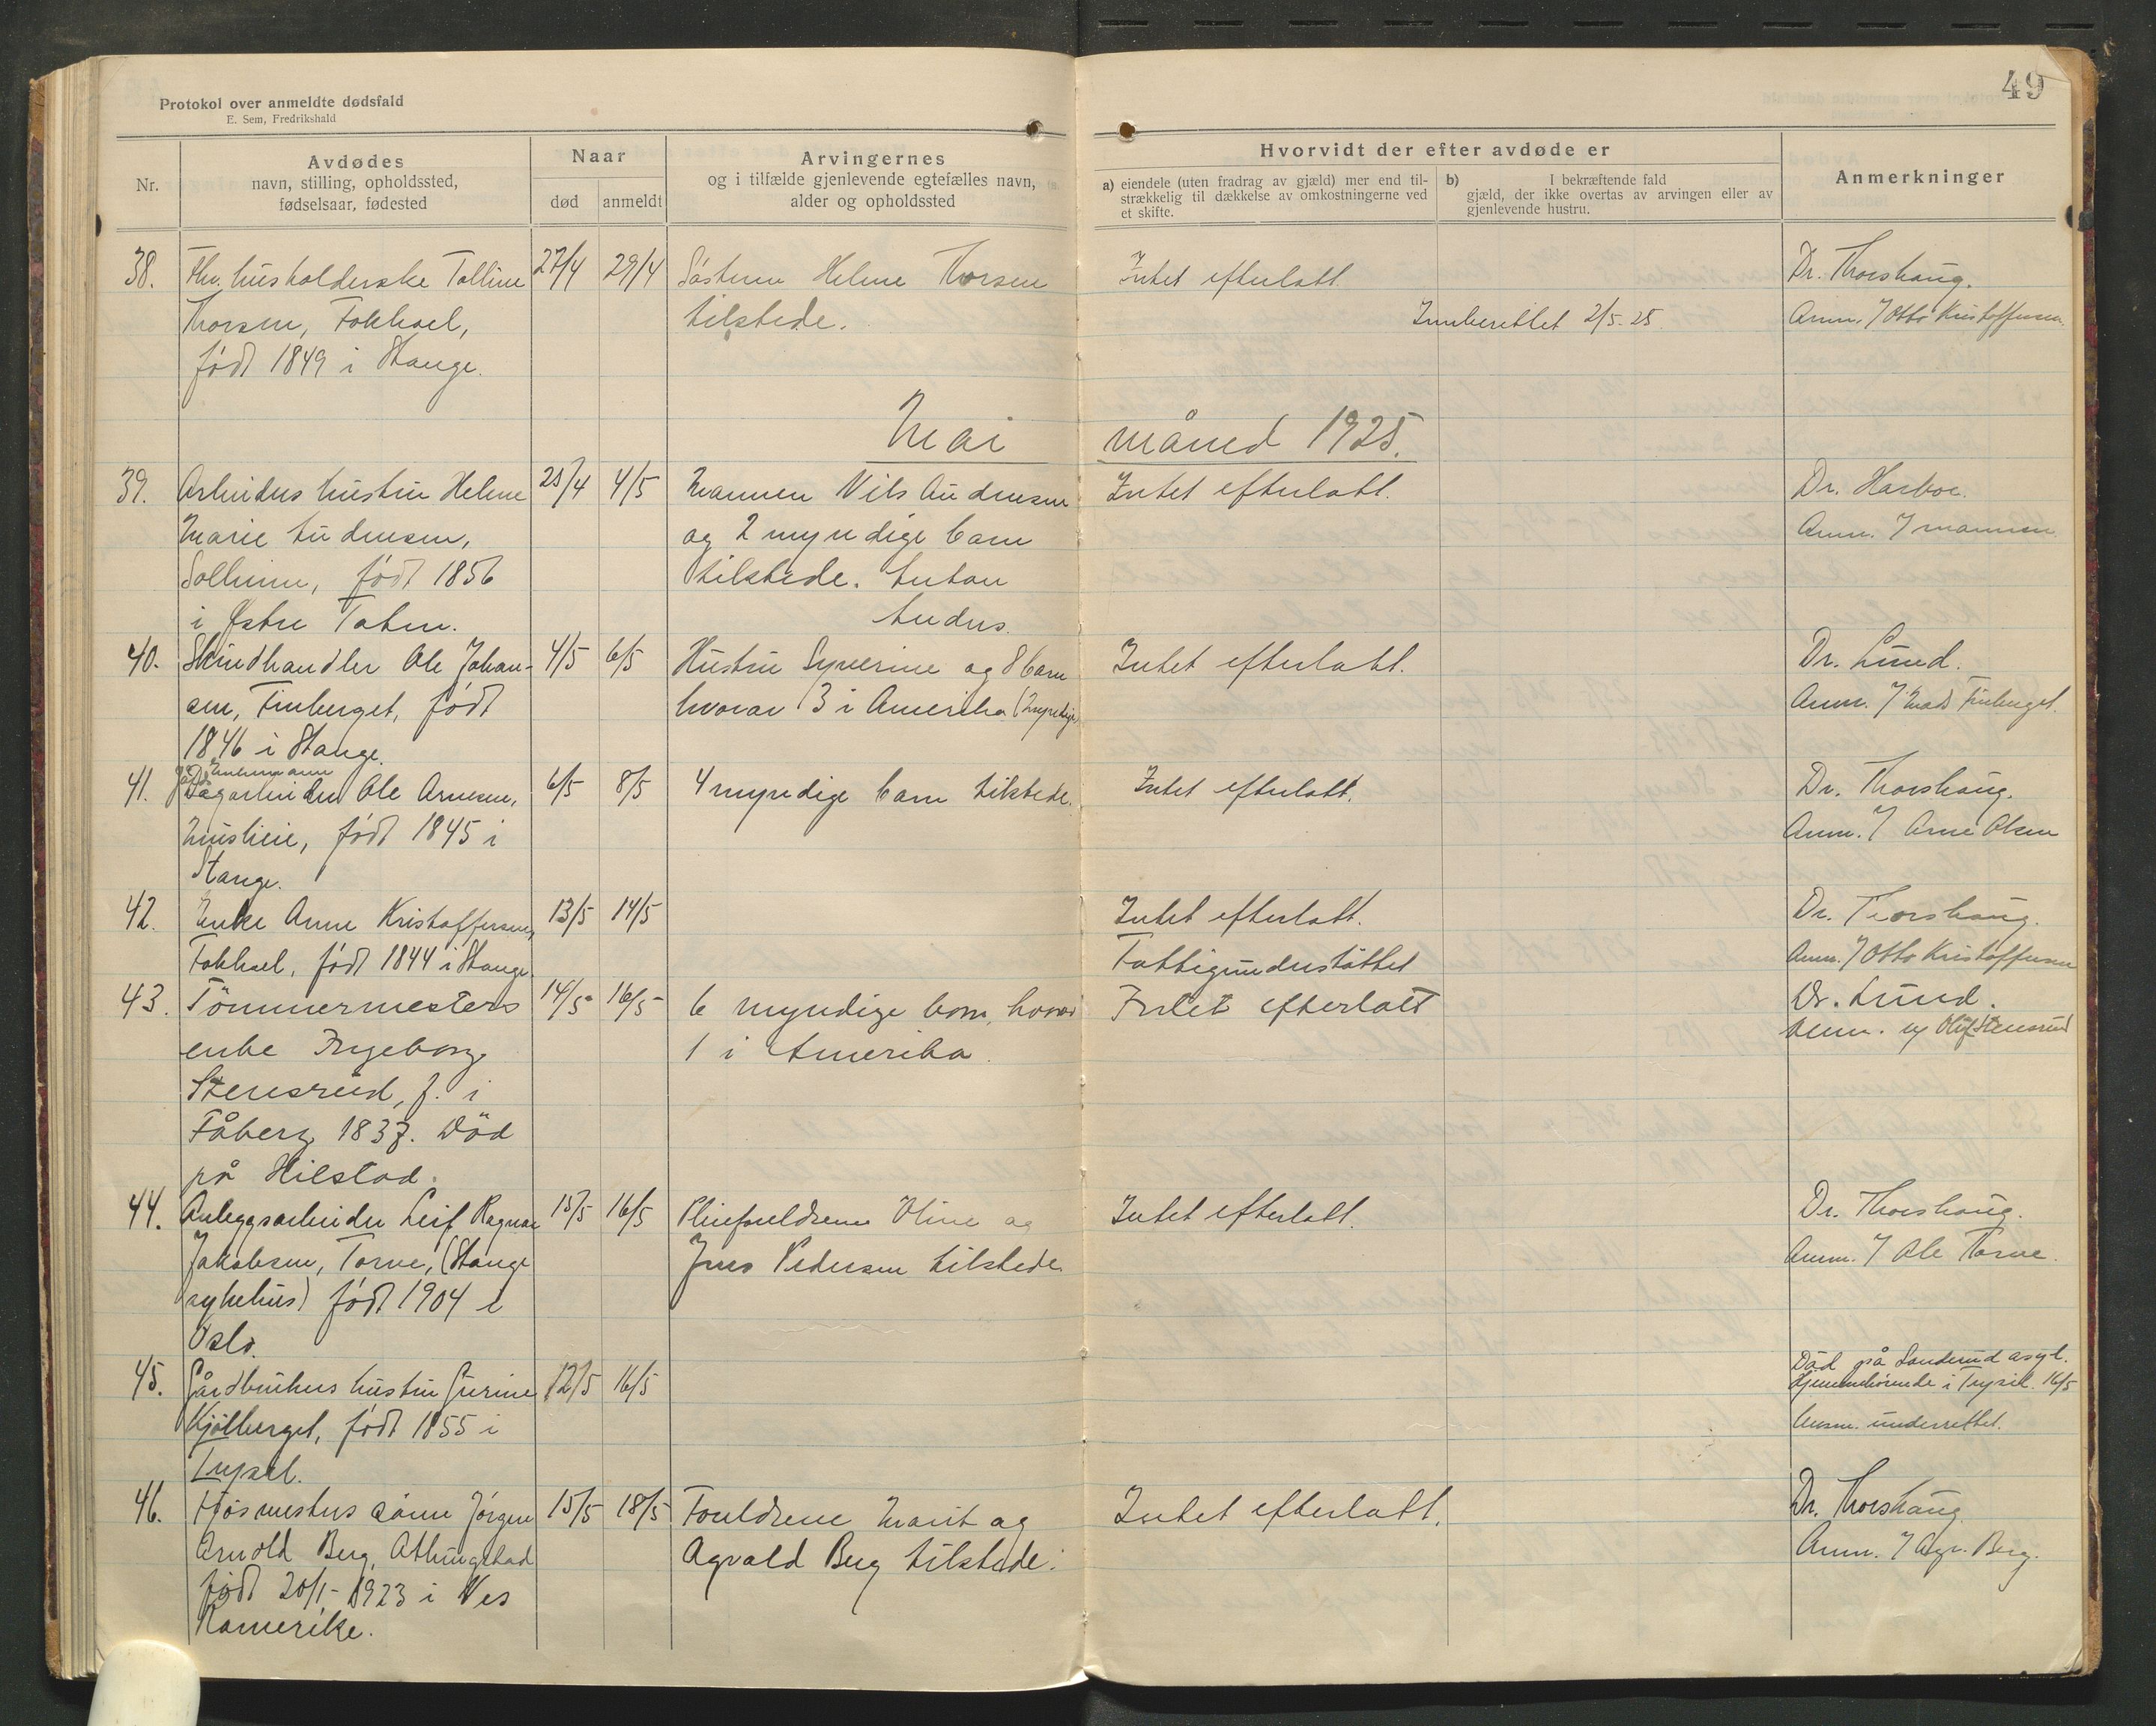 49
Protokol over anmeldte dødsfald
E. Sem, Fredrikshald
Nr.
Avdødes
navn, stilling, opholdssted,
fødselsaar, fødested
Naar
død
anmeldt
Arvingernes
og i tilfælde gjenlevende egtefælles navn,
alder og opholdssted
Hvorvidt der efter avdøde er
a) eiendele (uten fradrag av gjæld) mer end til-
strækkelig til dækkelse av omkostningerne ved
et skifte.
b) I bekræftende fald
gjæld, der ikke overtas av arvingen eller av
gjenlevende hustru.
Anmerkninger
38. Fhv. husholderske Talline 27/4 29/4 Søsteren Helene Thorsen Intet efterlatt. Dr. Thorshaug.
Thorsen, Fokhoel, tilstede. Innberettet 2/5-25. Anm. / Otto Kristoffersen.
født 1849 i Stange.
Mai måned 1925.
39. Arbeiders hustru Helene 25/4 4/5 Mannen Nils Andresen Intet efterlatt. Dr. Harboe.
Marie Andresen, og 2 myndige barn Anm. / mannen
Solheim, født 1856 tilstede. Anton
i Østre Toten. Anders.
40. Skindhandler Ole Johan- 4/5 6/5 Hustru Syverine og 8 barn Intet efterlatt. Dr. Lund.
sen, Finberget, født hvorav 3 i Amerika (myndige) Anm. / Mads Finberget.
1846 i Stange.
Enkemann
41. Dagarbeider Ole Arnesen, 6/5 8/5 4 myndige barn tilstede. Intet efterlatt. Dr. Thorshaug.
født 1845 i Anm. / Arne Olsen
Stange.
42. Enke Anne Kristoffersen, 13/5 14/5 Intet efterlatt. Dr. Thorshaug.
Fokhoel, født 1844 i Stange. Fattigunderstøttet Anm. / Otto Kristoffersen
43. Tömmermesters 14/5 16/5 6 myndige barn, hvorav Intet efterlatt Dr. Lund.
enke Ingeborg 1 i Amerika. Anm. av Oluf Stensrud
Stensrud, f. i
Fåberg 1837. Död
på Hilstad.
44. Anleggsarbeider Leif Ragnar 15/5 16/5 Pleieforeldrene Oline og Intet efterlatt. Dr. Thorshaug.
Jakobsen, Torve, (Stange Jens Pedersen tilstede. Anm. / Ole Torve.
sykehus) født 1904 i
Oslo.
45. Gårdbrukers hustru Gurine 12/5 16/5 Död på Sanderud asyl.
Kjølberget, født 1855 i Hjemmehørende i Trysil. 16/5
Trysil. lensm. underrettet.
46. Fjösmesters sønn Jörgen 15/5 18/5 Foreldrene Marit og Intet efterlatt. Dr. Thorshaug.
Arnold Berg, Atlungstad Agvald Berg tilstede. Anm. / Agv. Berg.
født 20/1-1923 i Nes
Romerike.